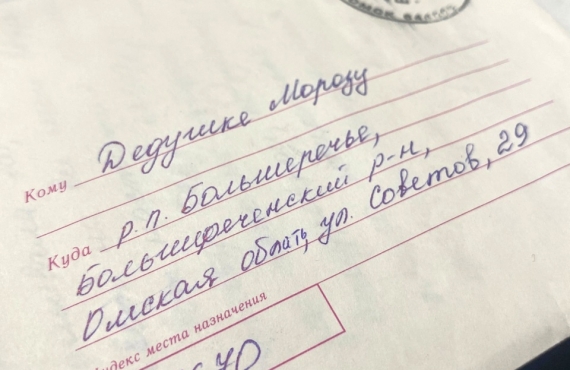 Кому Дедушке Морозу
Куда р.п. Большеречье,
Большереченский р-н,
Омская область, ул. Советов, 29
Индекс места назначения
670